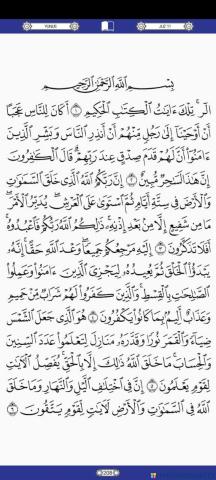 YUNUS
JUZ 11
بِسْمِ اللَّهِ الرَّحْمَٰنِ الرَّحِيمِ
الٓر ۚ تِلْكَ ءَايَٰتُ ٱلْكِتَٰبِ ٱلْحَكِيمِ ١ أَكَانَ لِلنَّاسِ عَجَبًا
أَنْ أَوْحَيْنَآ إِلَىٰ رَجُلٍ مِّنْهُمْ أَنْ أَنذِرِ ٱلنَّاسَ وَبَشِّرِ ٱلَّذِينَ
ءَامَنُوٓا۟ أَنَّ لَهُمْ قَدَمَ صِدْقٍ عِندَ رَبِّهِمْ ۗ قَالَ ٱلْكَٰفِرُونَ
إِنَّ هَٰذَا لَسَٰحِرٌ مُّبِينٌ ٢ إِنَّ رَبَّكُمُ ٱللَّهُ ٱلَّذِى خَلَقَ ٱلسَّمَٰوَٰتِ
وَٱلْأَرْضَ فِى سِتَّةِ أَيَّامٍ ثُمَّ ٱسْتَوَىٰ عَلَى ٱلْعَرْشِ ۖ يُدَبِّرُ ٱلْأَمْرَ ۖ
مَا مِن شَفِيعٍ إِلَّا مِنۢ بَعْدِ إِذْنِهِۦ ۚ ذَٰلِكُمُ ٱللَّهُ رَبُّكُمْ فَٱعْبُدُوهُ ۚ
أَفَلَا تَذَكَّرُونَ ٣ إِلَيْهِ مَرْجِعُكُمْ جَمِيعًا ۖ وَعْدَ ٱللَّهِ حَقًّا ۚ إِنَّهُۥ
يَبْدَؤُا۟ ٱلْخَلْقَ ثُمَّ يُعِيدُهُۥ لِيَجْزِىَ ٱلَّذِينَ ءَامَنُوا۟ وَعَمِلُوا۟
ٱلصَّٰلِحَٰتِ بِٱلْقِسْطِ ۚ وَٱلَّذِينَ كَفَرُوا۟ لَهُمْ شَرَابٌ مِّنْ حَمِيمٍ
وَعَذَابٌ أَلِيمٌۢ بِمَا كَانُوا۟ يَكْفُرُونَ ٤ هُوَ ٱلَّذِى جَعَلَ ٱلشَّمْسَ
ضِيَآءً وَٱلْقَمَرَ نُورًا وَقَدَّرَهُۥ مَنَازِلَ لِتَعْلَمُوا۟ عَدَدَ ٱلسِّنِينَ
وَٱلْحِسَابَ ۚ مَا خَلَقَ ٱللَّهُ ذَٰلِكَ إِلَّا بِٱلْحَقِّ ۚ يُفَصِّلُ ٱلْءَايَٰتِ
لِقَوْمٍ يَعْلَمُونَ ٥ إِنَّ فِى ٱخْتِلَٰفِ ٱلَّيْلِ وَٱلنَّهَارِ وَمَا خَلَقَ
ٱللَّهُ فِى ٱلسَّمَٰوَٰتِ وَٱلْأَرْضِ لَءَايَٰتٍ لِّقَوْمٍ يَتَّقُونَ ٦